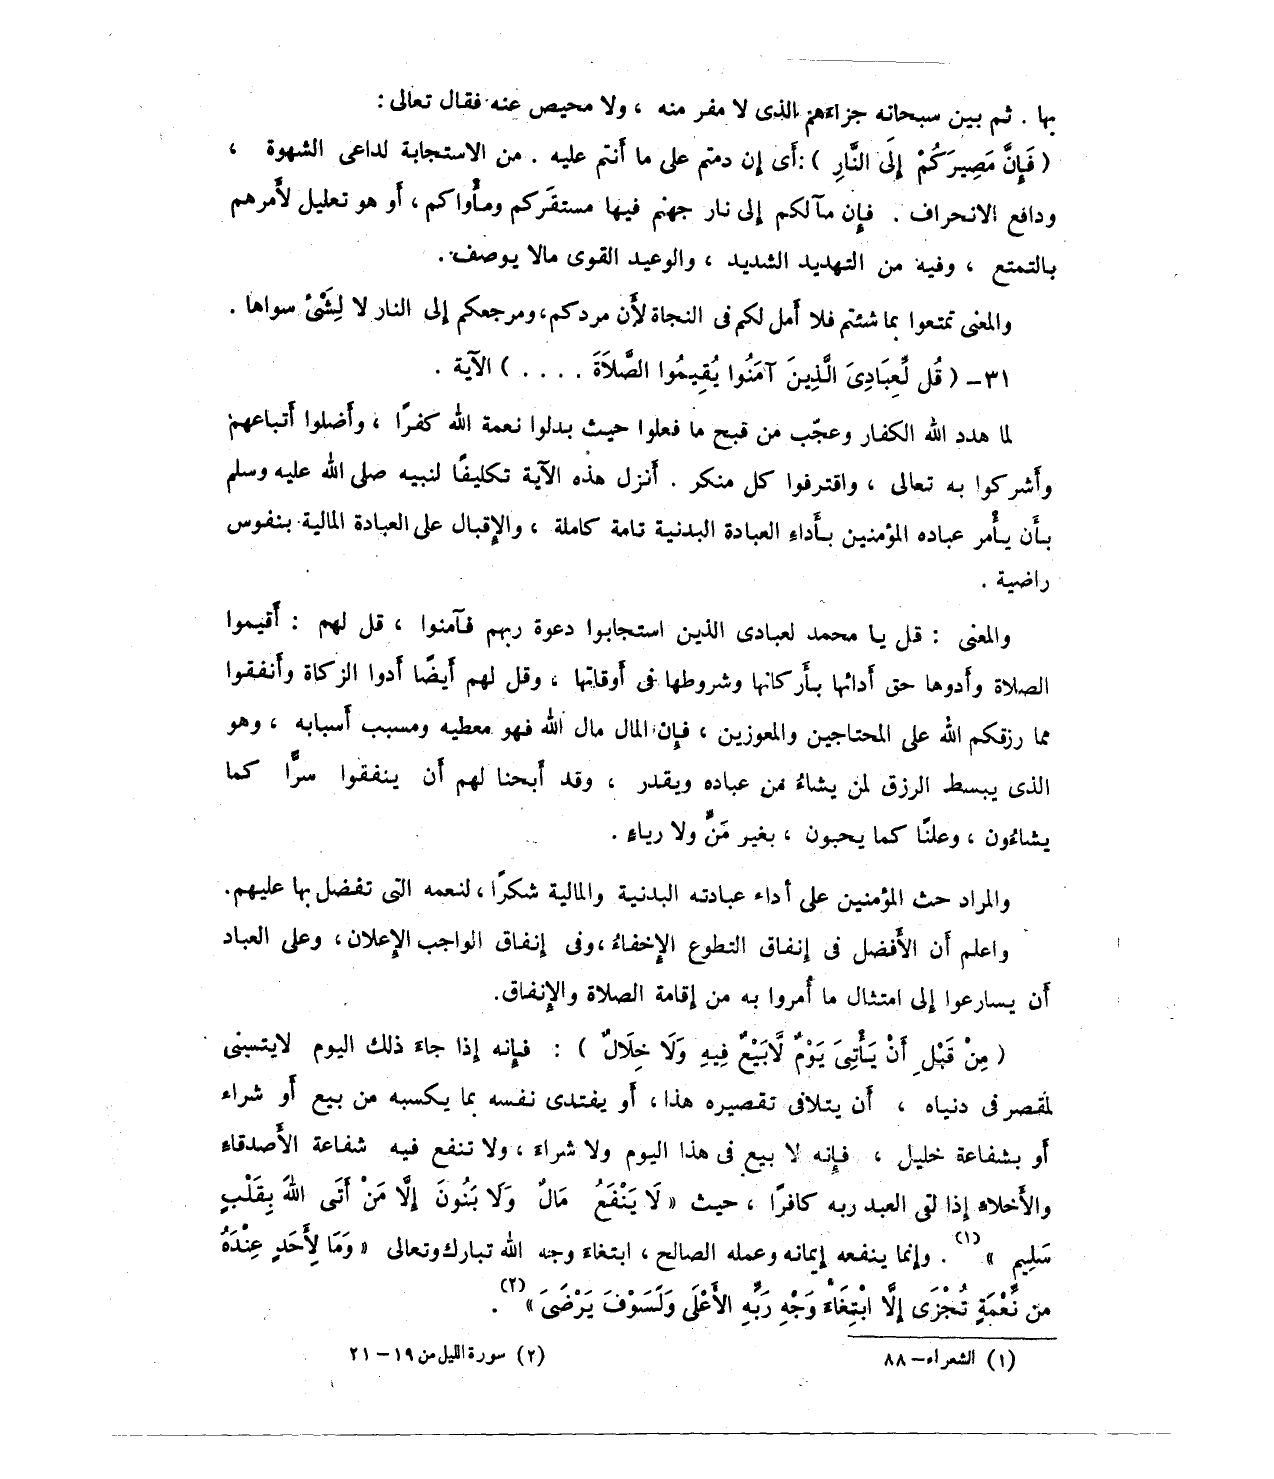 بها . ثم بين سبحانه جزاءهم الذى لا مفر منه ، ولا محيص عنه فقال تعالى :
( فَإِنَّ مَصِيرَكُمْ إِلَى النَّارِ ) : أى إن دمتم على ما أنتم عليه . من الاستجابة لداعى الشهوة ،
ودافع الانحراف . فإن مآلكم إلى نار جهنم فيها مستقركم ومأواكم ، أو هو تعليل لأمرهم
بالتمتع ، وفيه من التهديد الشديد ، والوعيد القوى مالا يوصف .
والمعنى تمتعوا بما شئتم فلا أمل لكم فى النجاة لأن مردكم ، ومرجعكم إلى النار لا لِشَىْءٍ سواها .
٣١ – ( قُل لِّعِبَادِىَ الَّذِينَ آمَنُوا يُقِيمُوا الصَّلَاةَ . . . . ) الآية .
لما هدد الله الكفار وعجّب من قبح ما فعلوا حيث بدلوا نعمة الله كفرًا ، وأضلوا أتباعهم
وأشركوا به تعالى ، واقترفوا كل منكر . أنزل هذه الآية تكليفًا لنبيه صلى الله عليه وسلم
بأن يأمر عباده المؤمنين بأداء العبادة البدنية تامة كاملة ، والإقبال على العبادة المالية بنفوس
راضية .
والمعنى : قل يا محمد لعبادى الذين استجابوا دعوة ربهم فآمنوا ، قل لهم : أقيموا
الصلاة وأدوها حق أدائها بأركانها وشروطها فى أوقاتها ، وقل لهم أيضًا أدوا الزكاة وأنفقوا
مما رزقكم الله على المحتاجين والمعوزين ، فإن المال مال الله فهو معطيه ومسبب أسبابه ، وهو
الذى يبسط الرزق لمن يشاءُ من عباده ويقدر ، وقد أبحنا لهم أن ينفقوا سرًّا كما
يشاءُون ، وعلنًا كما يحبون ، بغير مَنٍّ ولا رياءٍ .
والمراد حث المؤمنين على أداء عبادته البدنية والمالية شكرًا ، لنعمه التى تفضل بها عليهم .
واعلم أن الأفضل فى إنفاق التطوع الإخفاءُ ، وفى إنفاق الواجب الإعلان ، وعلى العباد
أن يسارعوا إلى امتثال ما أُمروا به من إقامة الصلاة والإنفاق .
( مِنْ قَبْلِ أَنْ يَأْتِىَ يَوْمٌ لَّابَيْعٌ فِيهِ وَلَا خِلَالٌ ) : فإنه إذا جاءَ ذلك اليوم لايتسنى
لمقصر فى دنياه ، أن يتلافى تقصيره هذا ، أو يفتدى نفسه بما يكسبه من بيع أو شراء
أو بشفاعة خليل ، فإنه لا بيع فى هذا اليوم ولا شراءَ ، ولا تنفع فيه شفاعة الأصدقاء
والأخلاء إذا لقى العبد ربه كافرًا ، حيث « لَا يَنْفَعُ مَالٌ وَلَا بَنُونَ إِلَّا مَنْ أَتَى اللهَ بِقَلْبٍ
سَلِيمٍ » (١) . وإنما ينفعه إيمانه وعمله الصالح ، ابتغاءَ وجه الله تبارك وتعالى « وَمَا لِأَحَدٍ عِنْدَهُ
من نِّعْمَةٍ تُجْزَى إِلَّا ابْتِغَاءَ وَجْهِ رَبِّهِ الأَعْلَى وَلَسَوْفَ يَرْضَى » (٢) .
(١) الشعراء – ٨٨
(٢) سورة الليل من ١٩ – ٢١